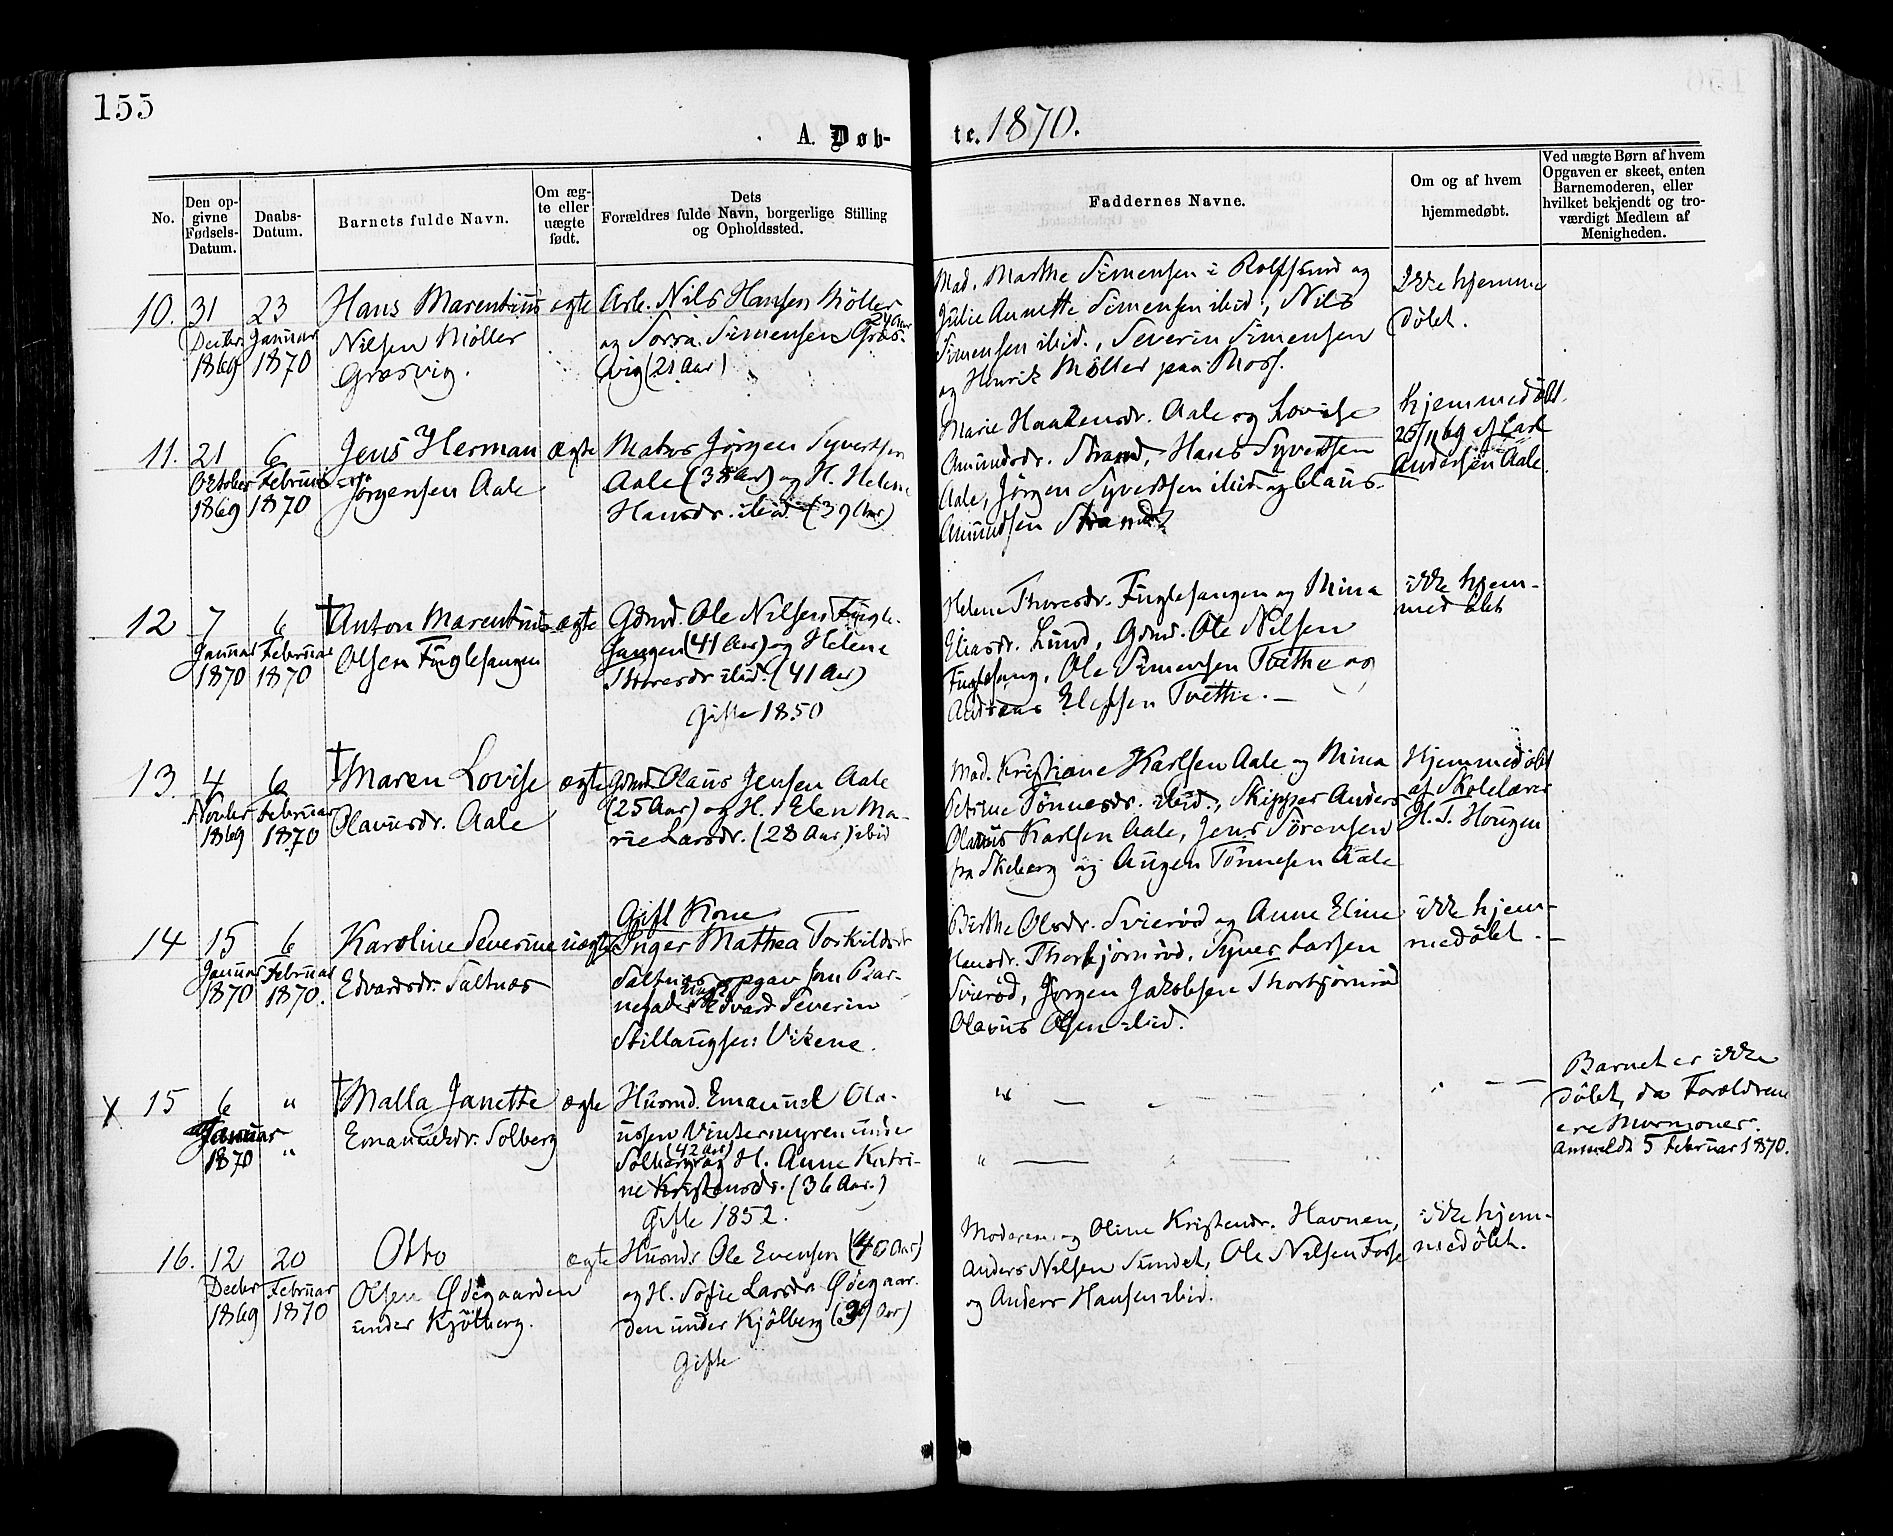 155
A. Døb-
te. 1870.
No.
Den op-
givne
Fødsels-
Datum.
Daabs-
Datum.
Barnets fulde Navn.
Om æg-
te eller
uægte
født.
Dets
Forældres fulde Navn, borgerlige Stilling
og Opholdssted.
Faddernes Navne.
Om og af hvem
hjemmedøbt.
Ved uægte Børn af hvem
Opgaven er skeet, enten
Barnemoderen, eller
hvilket bekjendt og tro-
værdigt Medlem af
Menigheden.
10.
31
Decbr
1869
23
Januar
1870
Hans Marentius
Nilsen Møller
Græsvig.
ægte
Arb. Nils Hansen Møller
24 Aar
og Simensen Græs-
vig (21 Aar)
Mad. Marthe Simensen i Rolfsund og
Julie Annette Simensen ibid., Nils
Simensen ibid., Severin Simensen
og Henrik Møller paa Moss.
Ikke hjemme
døbt.
11.
21
Oktober
1869
6
Februar
1870
Jens Herman
Jørgensen Aale
ægte
Matros Jørgen Syvertsen
Aale (38 Aar) og H. Helene
Hansdr. ibid. (39 Aar)
Marie Haakensdr. Aale og Lovise
Amundsdr. Strand, Hans Syvertsen
Aale, Jørgen Syvertsen ibid. og Claus
Amundsen Strand
Hjemmedøbt
25/11 69 af Carl
Andersen Aale.
12
7
Januar
1870
6
Februar
1870
† Anton Marentius
Olsen Fuglesangen
ægte
Gdmd. Ole Nilsen Fugle-
sangen (41 Aar) og Helene
Thoresdr ibid. (41 Aar)
Gifte 1850
Helene Thoresdr. Fuglesangen og Mina
Eliasdr. Lund, Gdmd. Ole Nilsen
Fuglesang, Ole Simensen Tvethe og
Andreas Ellefsen Tvethe. —
ikke hjem-
medøbt
13.
4
Novbr
1869
6
Februar
1870
† Maren Lovise
Olausdr. Aale
ægte
Gdmd. Olaus Jensen Aale
(25 Aar) og H. Elen Ma-
rie Larsdr. (28 Aar) ibid
Mad. Kristiane Karlsen Aale og Mina
Petrine Tønnesdr. ibid., Skipper Anders
Olaus Karlsen Aale, Jens Sørensen
fra Skeberg og Augen Tønnesen Aale
Hjemmedøbt
af Skolelærer
H. T. Hougen
14
15
Januar
1870
6
Februar
1870.
Karoline Severine
Edvardsdr. Saltnæs
uægte
Gift Kone
Inger Mathea Torkildsdr
Saltnæs opgav som Bar-
nefader Ungk. Edvard Severin
Stillaugsen Vikene.
Birthe Olsdr. Svierød og Anne Eline
Hansdr. Thorbjørnrød, Syver Larsen
Svierød, Jørgen Jakobsen Thorbjørnrød
Olaus Olsen ibid.
ikke hjem-
medøbt. —
X 15
6
Januar
1870
"
"
† Malla Janette
Emanuelsdr. Solberg
ægte
Husmd. Emanuel Ola-
ussen Vintermyren under
(42 Aar)
Solberg og H. Anne Katri-
ne Kristensdr. (36 Aar.)
Gifte 1852.
" — " — " — —
" — " — "
Barnet er ikke
døbt, da Forældrene
ere Mormoner.
Anmeldt 5 Februar 1870.
16.
12
Decbr
1869
20
Februar
1870
Otto
Olsen Ødegaarden
under Kjølberg.
ægte
Husmd. Ole Evensen (40 Aar)
og H. Sofie Larsdr. Ødegaar-
den under Kjølberg (39 Aar)
Gifte
Moderen og Oline Kristendr. Havnen,
Anders Nilsen Sundet, Ole Nilsen Fosse
og Anders Hansen ibid.
ikke hjem-
medøbt.